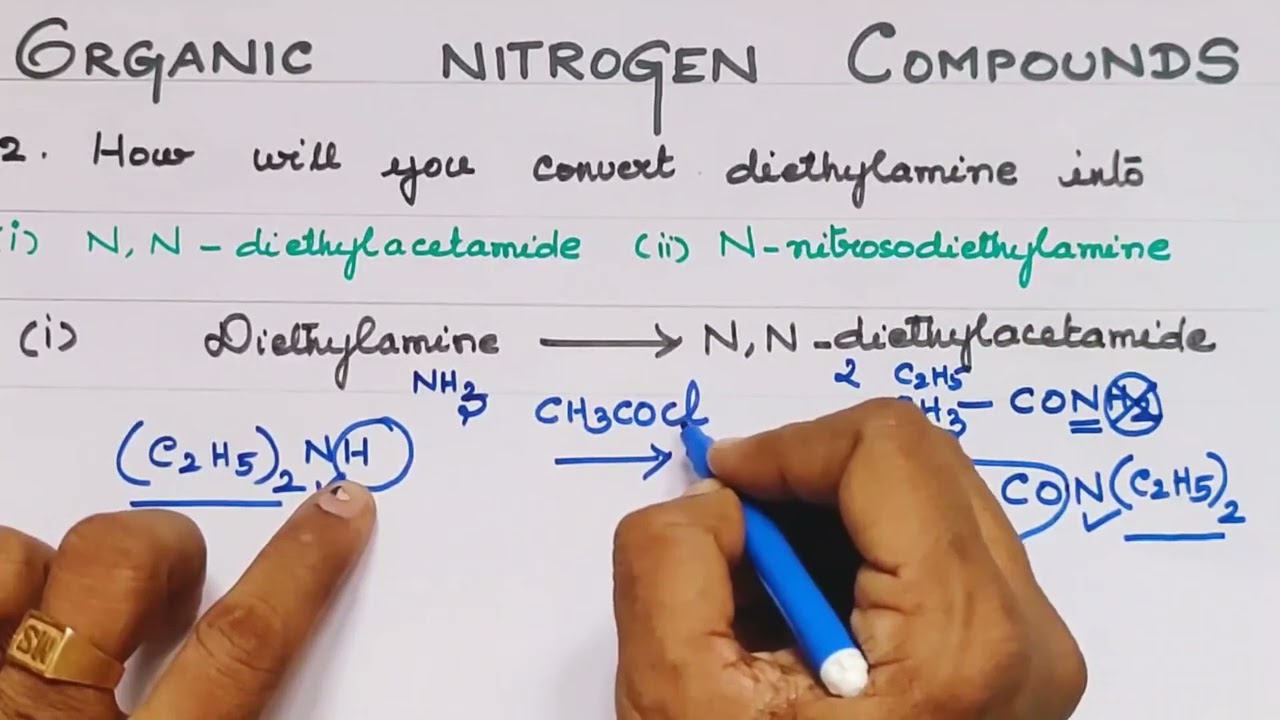 ORGANIC NITROGEN COMPOUNDS
2. How will you convert diethylamine into
(i) N, N - diethylacetamide (ii) N-nitrosodiethylamine
(i) Diethylamine ⟶ N, N - diethylacetamide
NH3 2 C2H5
CH3COCl CH3 - CONH2
(C2H5)2NH ⟶ CON(C2H5)2
SW